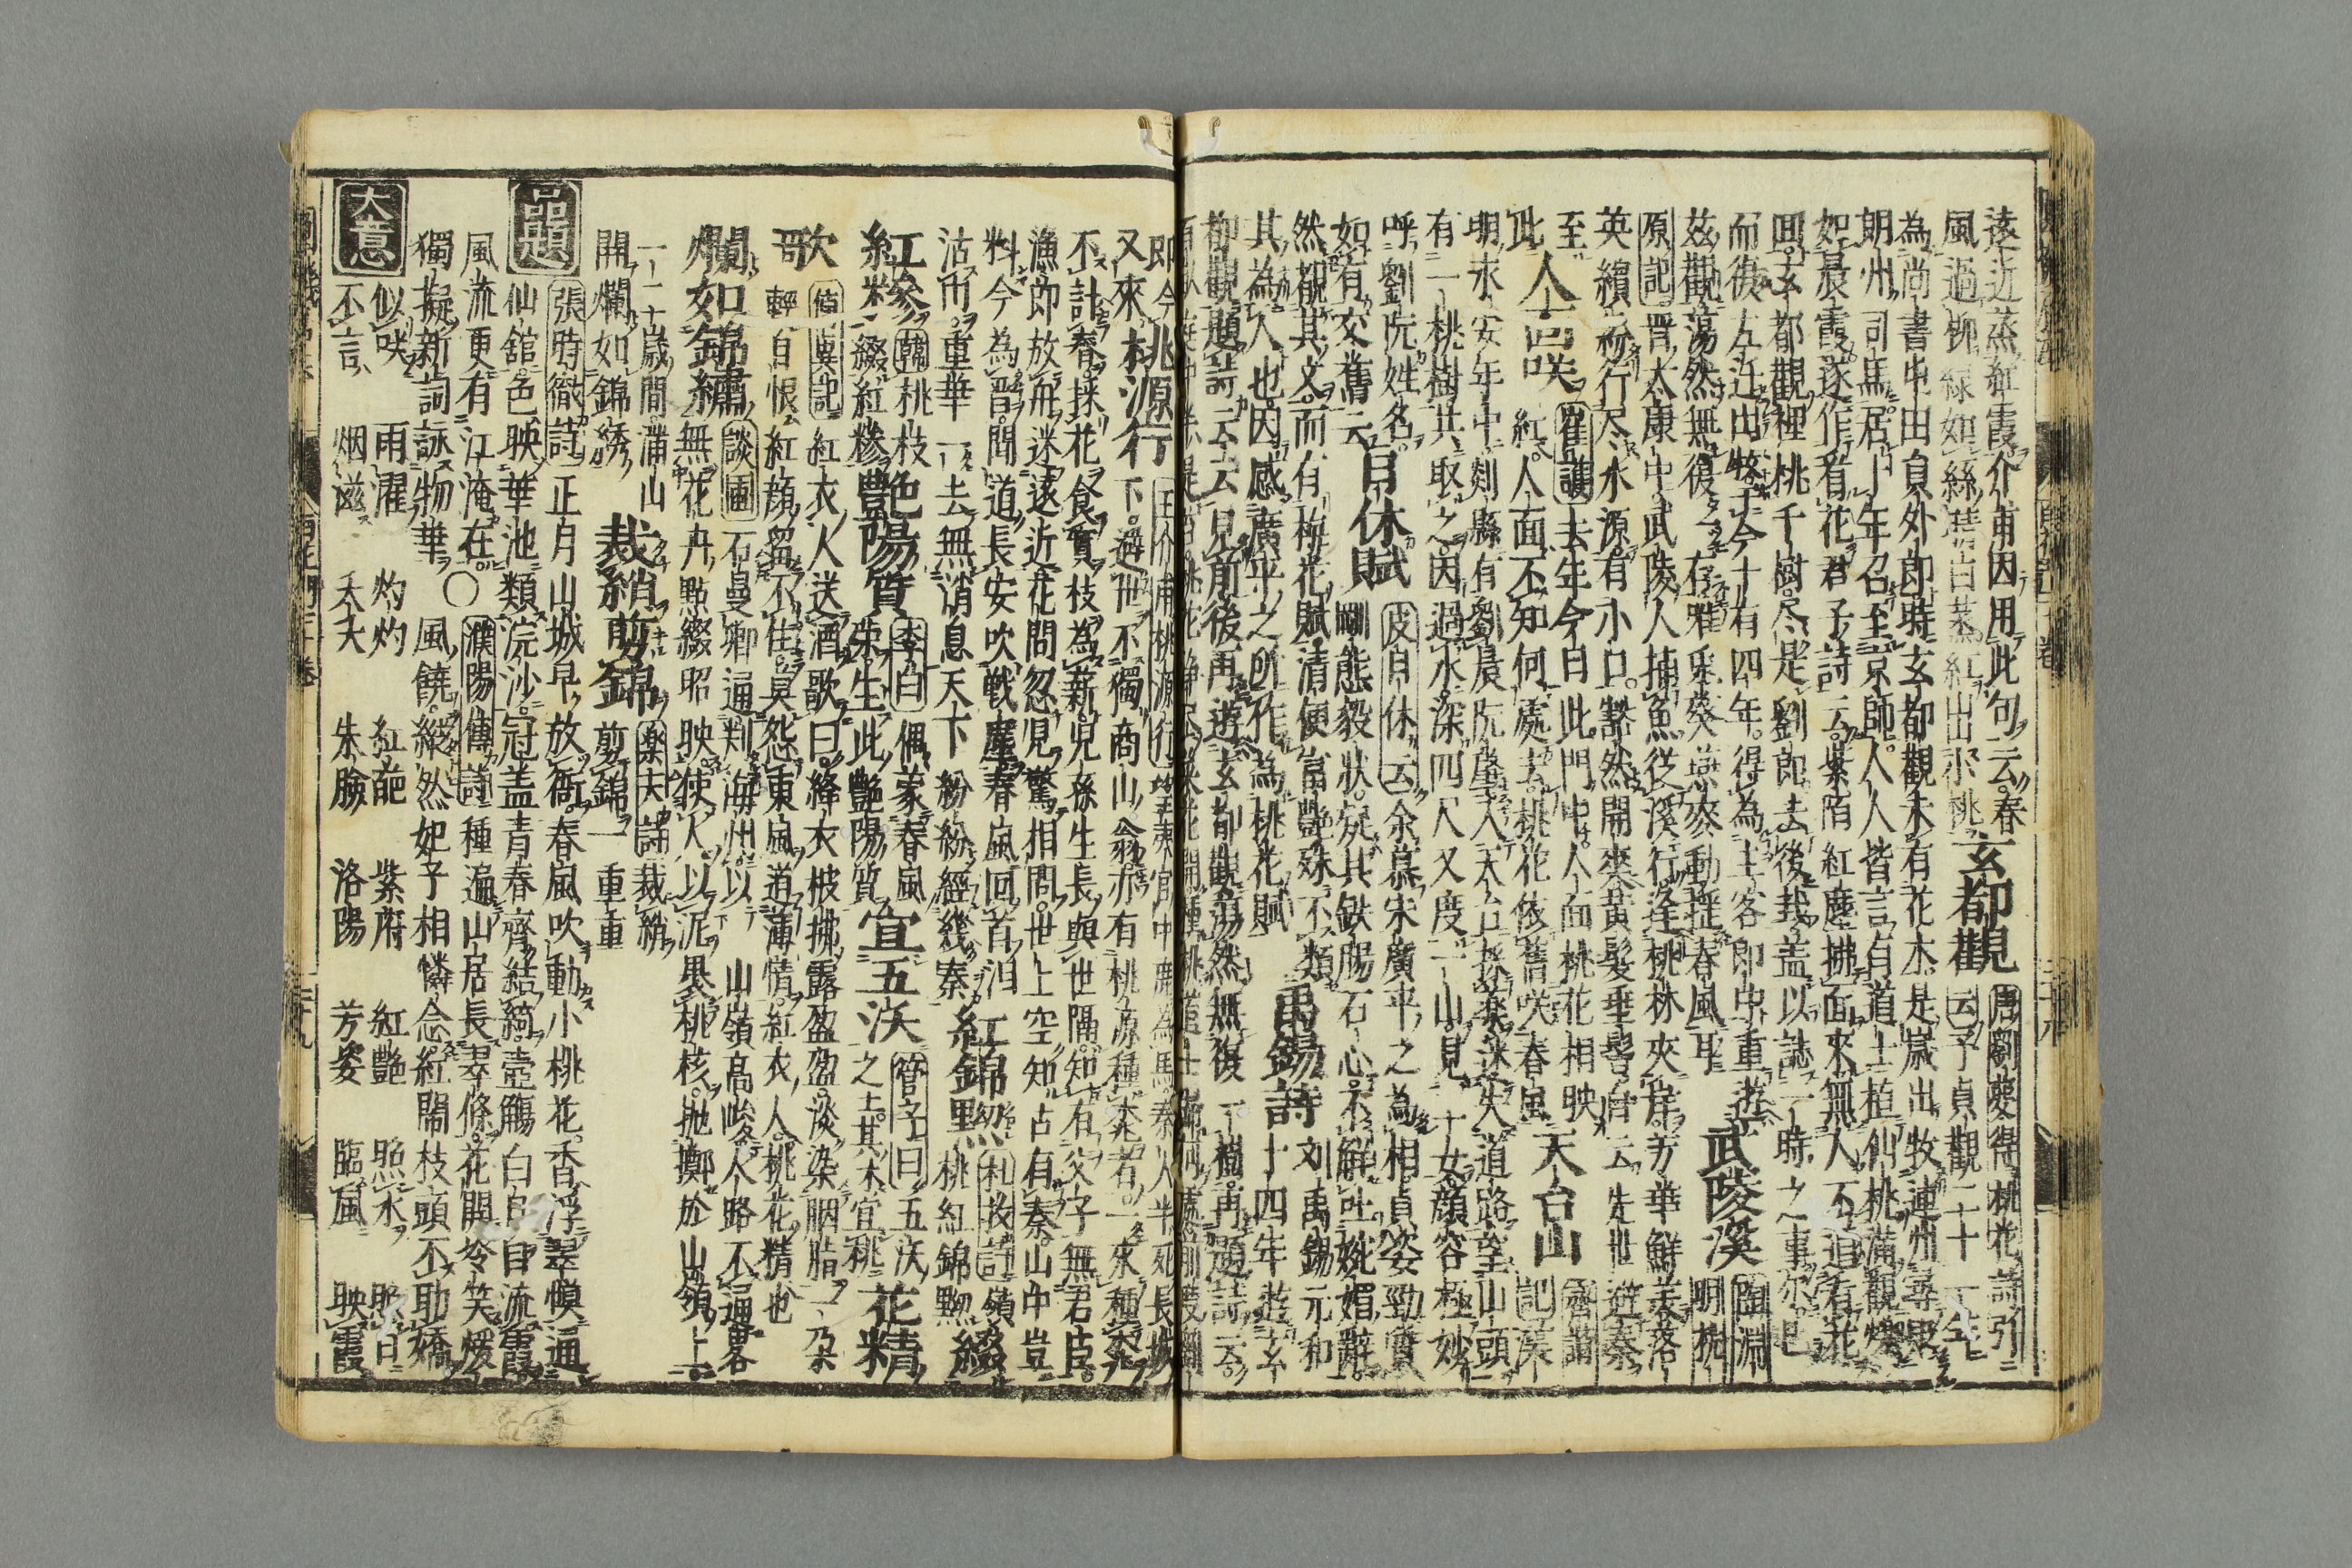 遠近蒸紅霞介甫因用此句云春
風過柳綠如繰晴日蒸紅出小桃
玄都觀
唐劉夢得桃花詩引
云予貞觀二十一年
為尚書屯田員外郎時玄都觀未有花木是歲出牧連州尋貶
朗州司馬居十年召至京師人人皆言有道士植仙桃滿觀爛
如晨霞遂作看花君子詩云紫陌紅塵拂面來無人不道看花
回玄都觀裡桃千樹尽是劉郎去後栽盖以誌一時之事尔已
而復左迁出牧于今十有四年得為主客郎中重遊
茲觀蕩然無復一樹存唯兎葵燕麥動揺春風耳
武陵溪
陶淵明桃
原記晋太康中武陵人捕魚從溪行逢桃林夾岸芳華鮮美落
英繽紛行尺水源有小口豁然開來黄髮垂髫自云先世避秦
至此
人亡咲
崔護去年今日此門中人面桃花相映
紅人面不知何處去桃花依舊咲春風
天台山
齊諧記漢
明永安年中剡縣有劉晨阮肇入太台採藥迷失道路望山頭
有一桃樹共取之因過水深四尺又度一山見二女顔容極妙
呼劉阮姓名
如有交舊云
日休賦
皮日休云余慕宋廣平之為相貞姿勁質
剛態毅狀疑其鉄膓石心不解吐婉媚辭
然覩其文而有梅花賦清便富艶殊不類
其為人也因感廣平之所作為桃花賦
禹錫詩
刘禹錫元和
十四年遊玄
都觀題詩云云見前後再遊玄都觀蕩然無復一樹再題詩云
百畝庭中半是苔桃花静尽菜花開種桃道士歸何處前度劉
郎今
又來
桃源行
王介甫桃源行望夷宮中鹿為馬秦人半死長城
下避世不獨商山翁亦有桃源種桃者一來種桃
不計春採花食實枝為薪児孫生長與世隔知有父子無君臣
漁郎放舟迷遠近花間忽見驚相問世上空知古有秦山中豈
料今為晋聞道長安吹戦塵春風回首泪
沾巾重華一去無消息天下紛紛經幾秦
紅錦黙
杜牧詩嶺
桃紅錦黙
綴
紅糝
韓桃枝
綴紅糝
艶陽質
李白偶蒙春風
栄生此艶陽質
宜五沃
管子曰五沃
之土其木宜桃
花精
歌
偵異記紅衣人送酒歌曰絳衣披拂露盈盈淡染胭脂一朶
輕自恨紅顔留不住莫怨東風道薄情紅衣人桃花精也
爛如錦繡
談圃石曼卿通判海州以山嶺高峻人路不通畧
無花卉點綴昭映使人以泥裹桃核抛擲於山嶺上
一二歳間滿山
開爛如錦綉
裁綃剪錦
楽天詩裁綃
剪錦一重重
品題
張時徹詩正月山城早放衙春風吹動小桃花香浮翠幔通
仙舘色映華池類浣沙冠盖青春齊結綺壺觴白日自流霞
風流更有江淹在○濮陽傳詩種遍山居長翠條花開冷笑煖
獨擬新詞詠物華風饒縱然妃子相憐念紅閙枝頭不助嬌
大意
似咲　雨濯　灼灼　紅葩　紫府　紅艶　照水　照日
不言　烟滋　夭夭　朱臉　洛陽　芳姿　臨風　映霞